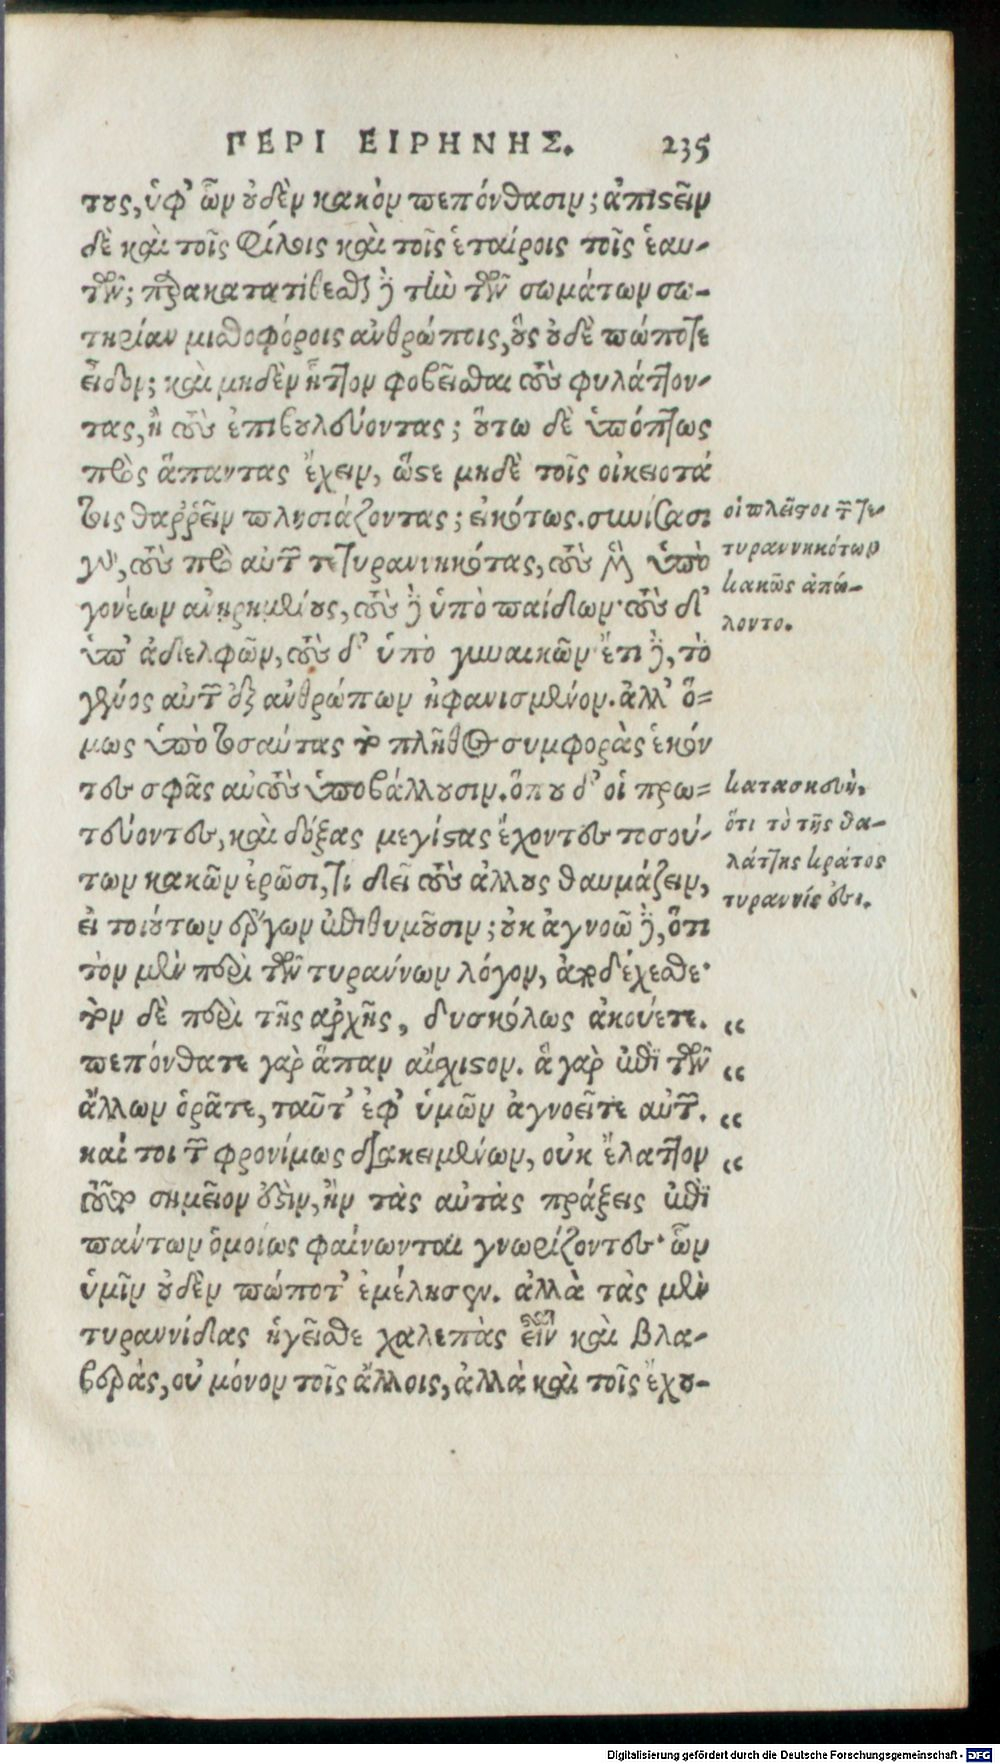 ΠΕΡΙ ΕΙΡΗΝΗΣ. 235
τους, ὑφ' ὧν οὐδὲν κακὸν πεπόνθασιν; ἀπιστεῖν
δὲ καὶ τοῖς φίλοις καὶ τοῖς ἑταίροις τοῖς ἑαυ-
τῶν; παρακατατίθεσθαι δὲ τὴν τῶν σωμάτων σω-
τηρίαν μισθοφόροις ἀνθρώποις, οὓς οὐδὲ πώποτε
εἶδον; καὶ μηδὲν ἧττον φοβεῖσθαι τοὺς φυλάττον-
τας, ἢ τοὺς ἐπιβουλεύοντας; οὕτω δὲ ὑπόπτως
πρὸς ἅπαντας ἔχειν, ὥστε μηδὲ τοῖς οἰκειοτά
τοις θαῤῥεῖν πλησιάζοντας; εἰκότως. συνίσασι
γὰρ, τοὺς πρὸ αὐτῶν τετυραννικότας, τοὺς μὲν ὑπὸ
γονέων ἀνῃρημένους, τοὺς δὲ ὑπὸ παίδων· τοὺς δ'
ὑπ' ἀδελφῶν, τοὺς δ' ὑπὸ γυναικῶν· ἔτι δὲ, τὸ
γένος αὐτῶν ἐξ ἀνθρώπων ἠφανισμένον. ἀλλ' ὅ-
μως ὑπὸ τοσαύτας τὸ πλῆθος συμφορὰς ἑκόν
τες σφᾶς αὐτοὺς ὑποβάλλουσιν. ὅπου δ' οἱ πρω-
τεύοντες, καὶ δόξας μεγίστας ἔχοντες τοσού-
των κακῶν ἐρῶσι, τί δεῖ τοὺς ἄλλους θαυμάζειν,
εἰ τοιούτων ἔργων ἐπιθυμοῦσιν; οὐκ ἀγνοῶ δὲ, ὅτι
τὸν μὲν περὶ τῶν τυράννων λόγον, ἀποδέχεσθε·
τὸν δὲ περὶ τῆς ἀρχῆς, δυσκόλως ἀκούετε. “
πεπόνθατε γὰρ ἅπαν αἴσχιστον. ἃ γὰρ ἐπὶ τῶν “
ἄλλων ὁρᾶτε, ταῦτ' ἐφ' ὑμῶν ἀγνοεῖτε αὐτῶν. “
καί τοι τῶν φρονίμως διακειμένων, οὐκ ἔλαττον “
τοῦτο σημεῖον ἐστὶν, ἢν τὰς αὐτὰς πράξεις ἐπὶ
πάντων ὁμοίως φαίνωνται γνωρίζοντες· ὧν
ὑμῖν οὐδὲν πώποτ' ἐμέλησεν. ἀλλὰ τὰς μὲν
τυραννίδας ἡγεῖσθε χαλεπὰς εἶναι καὶ βλα-
βερὰς, οὐ μόνον τοῖς ἄλλοις, ἀλλὰ καὶ τοῖς ἔχου-
οἱ πλεῖστοι τῶν τε-
τυραννηκότων
κακῶς ἀπώ-
λοντο.
κατασκευὴ,
ὅτι τὸ τῆς θα-
λάττης κράτος
τυραννίς ἐστι.
Digitalisierung gefördert durch die Deutsche Forschungsgemeinschaft - DFG